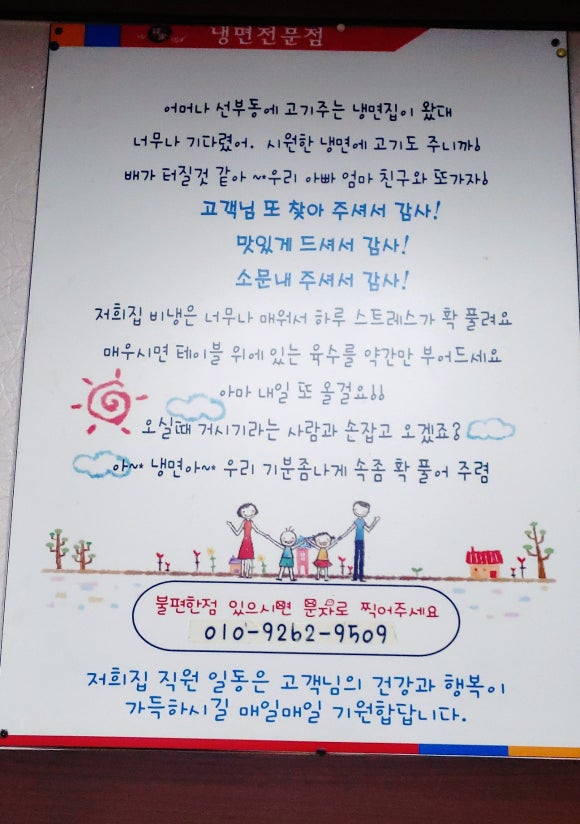 냉면전문점
어머나 선부동에 고기주는 냉면집이 왔대
너무나 기다렸어. 시원한 냉면에 고기도 주니까!
배가 터질것 같아 ~*우리 아빠 엄마 친구와 또가자!
고객님 또 찾아 주셔서 감사!
맛있게 드셔서 감사!
소문내 주셔서 감사!
저희집 비냉은 너무나 매워서 하루 스트레스가 확 풀려요
매우시면 테이블 위에 있는 육수를 약간만 부어드세요
아마 내일 또 올걸요!!
오실때 거시기라는 사람과 손잡고 오겠죠?
아~* 냉면아~* 우리 기분좀나게 속좀 확 풀어 주렴
불편한점 있으시면 문자로 찍어주세요
010-9262-9509
저희집 직원 일동은 고객님의 건강과 행복이
가득하시길 매일매일 기원합답니다.